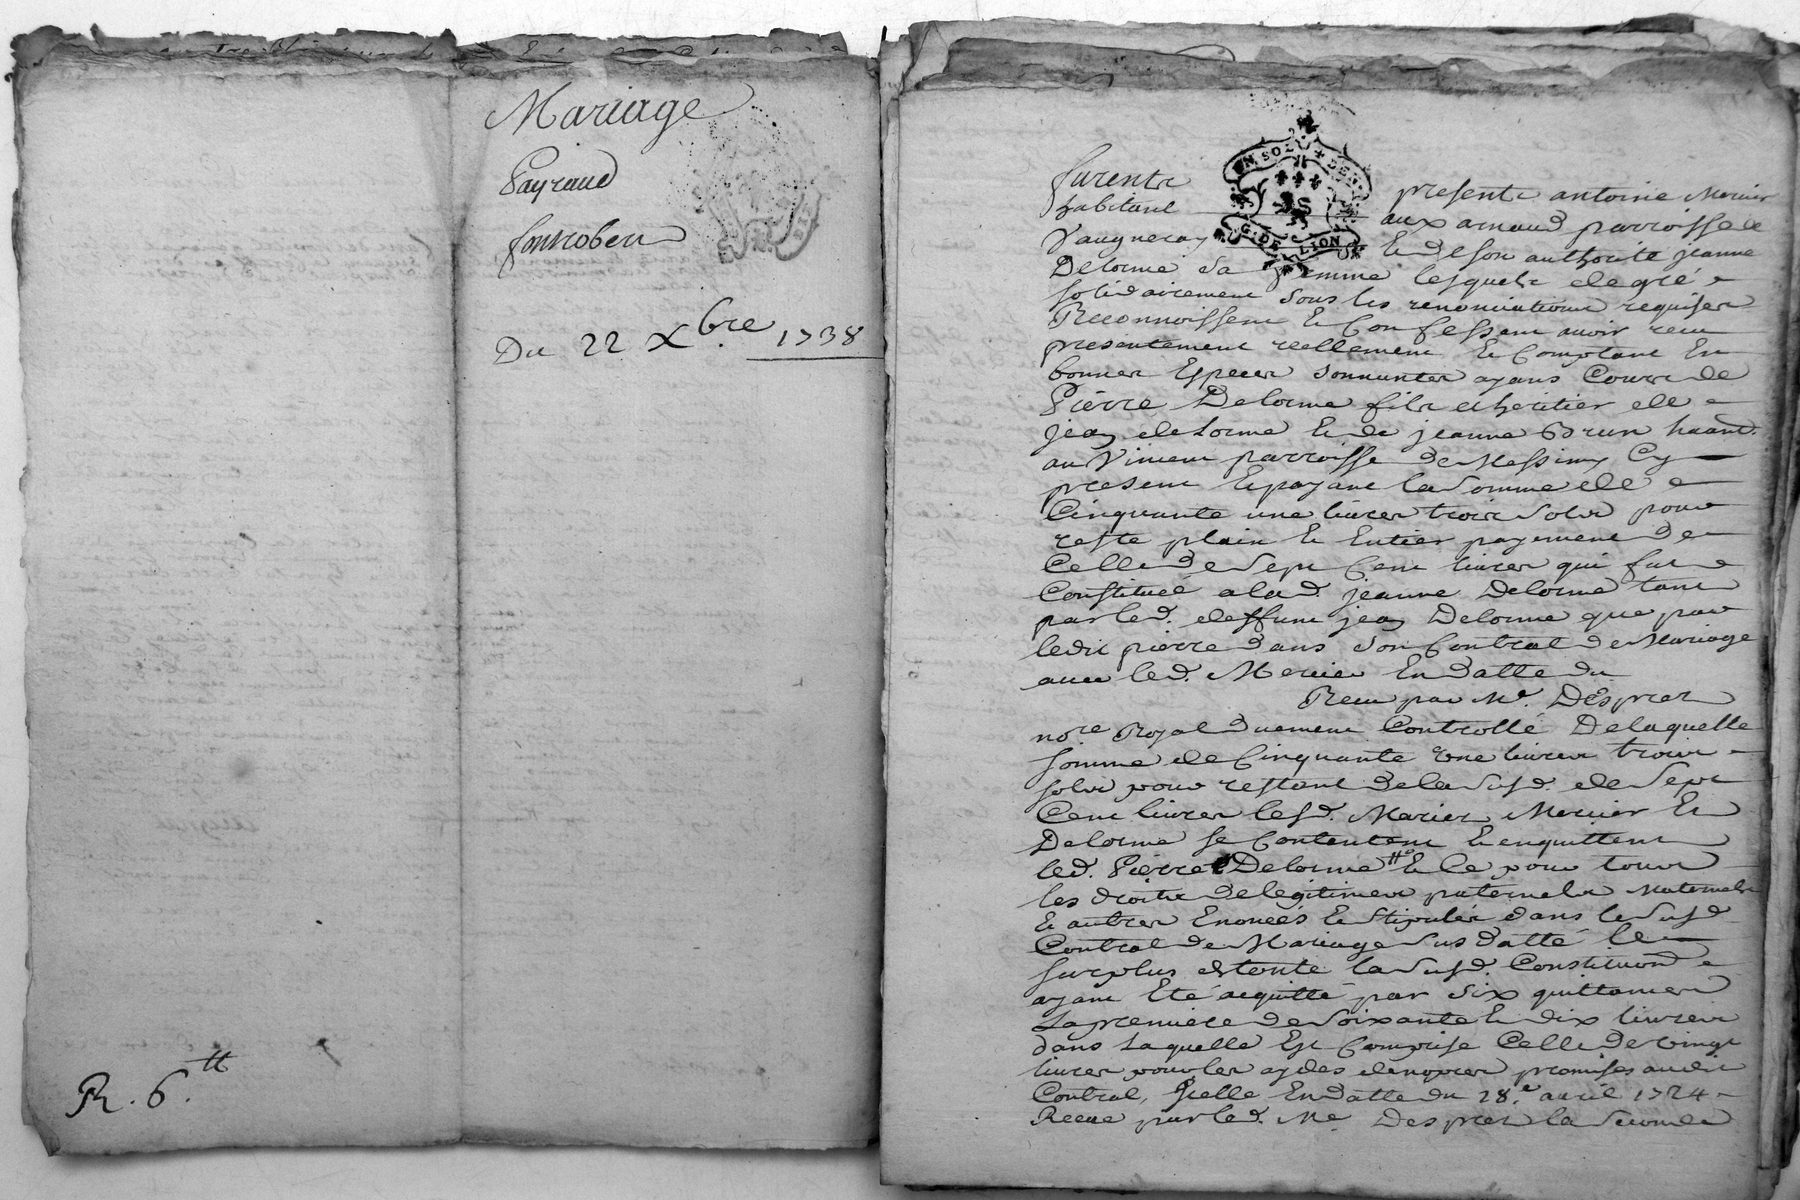 Mariage
Payraud
fontrobert
Du 22 Xbre 1738
R. 6.tt
M. SOL + DEN.
G. DE LION
furent presents antoine Mercier
habitant aux arnaud parroisse de
Vaugneray & de son authorité jeanne
Delorme sa femme lesquels de gré e
solidairement sous les renonciations requises
Reconnoissent & Confessent avoir receu
presentement reellement & Comptant En
bonnes Especes sonnantes ayans Cours de
Pierre Delorme fils et heritier de
jean delorme & de jeanne Brun haant.
au Vimeu parroisse de Messimy Cy
present & payant la somme de
Cinquante une livres trois sols pour
reste plain & Entier payement de
Celle de Sept Cent livres qui fut
Constituée a lad. jeanne Delorme tant
par led. deffunt jean Delorme que par
ledit pierre dans son Contrat de Mariage
avec led. Mercier En datte du
Receu par Me. Desprez
nore Royal duement Controllé Delaquelle
somme de Cinquante une livres trois
sols pour restant de la susd. de Sept
Cent livres lesd. Mariez Mercier Et
Delorme se Contentent & enquittent
led. Pierre Delorme & ce pour tous
les droits de legitimes paternels Maternels
& autres Enoncés & Stipulés dans le susd
Contrat de Mariage sus datté le
surplus de toute la susd. Constitution
ayant Eté acquitté par six quittances
La premiere de soixante & dix livres
dans Laquelle Est Comprise Celle de vingt
livres pour les aydes de nopces promises audit
Contrat, Icelle En datte du 28.e avril 1724
Receue par led. Me. Desprez la seconde